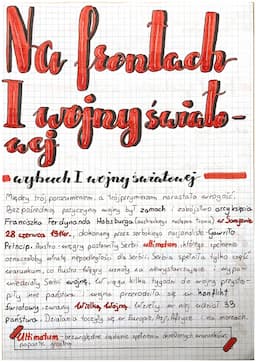 Na frontach
I wojny świato-
wej
wybuch I wojny światowej
Między trójporozumieniem, a trójprzymierzem narastała wrogość.
Bezpośrednią przyczyną wojny był zamach i zabójstwo arcyksięcia
Franciszka Ferdynanda Habsburga (austriackiego następcę tronu), w Sarajewie
28 czerwca 1914r. dokonany przez serbskiego nacjonalistę Gawriło
Princip. Austro-Węgry postawiły Serbii ultimatum, którego spełnienie
oznaczałoby utratę niepodległości dla Serbii. Serbia spełniła tylko część
warunków, co Austro-Węgry uznały za niewystarczające i wypo-
wiedziały Serbii wojnę. W ciągu kilku tygodni do wojny przystą-
piły inne państwa i wojna przerodziła się w konflikt
światowy zwany Wielką Wojną. Wzięły w niej udział 33
państwa. Działania toczyły się w Europie, Azji, Afryce i na morzach.
Ultimatum - bezwzględne żądanie spełnienia określonych warunków
poparte groźbą